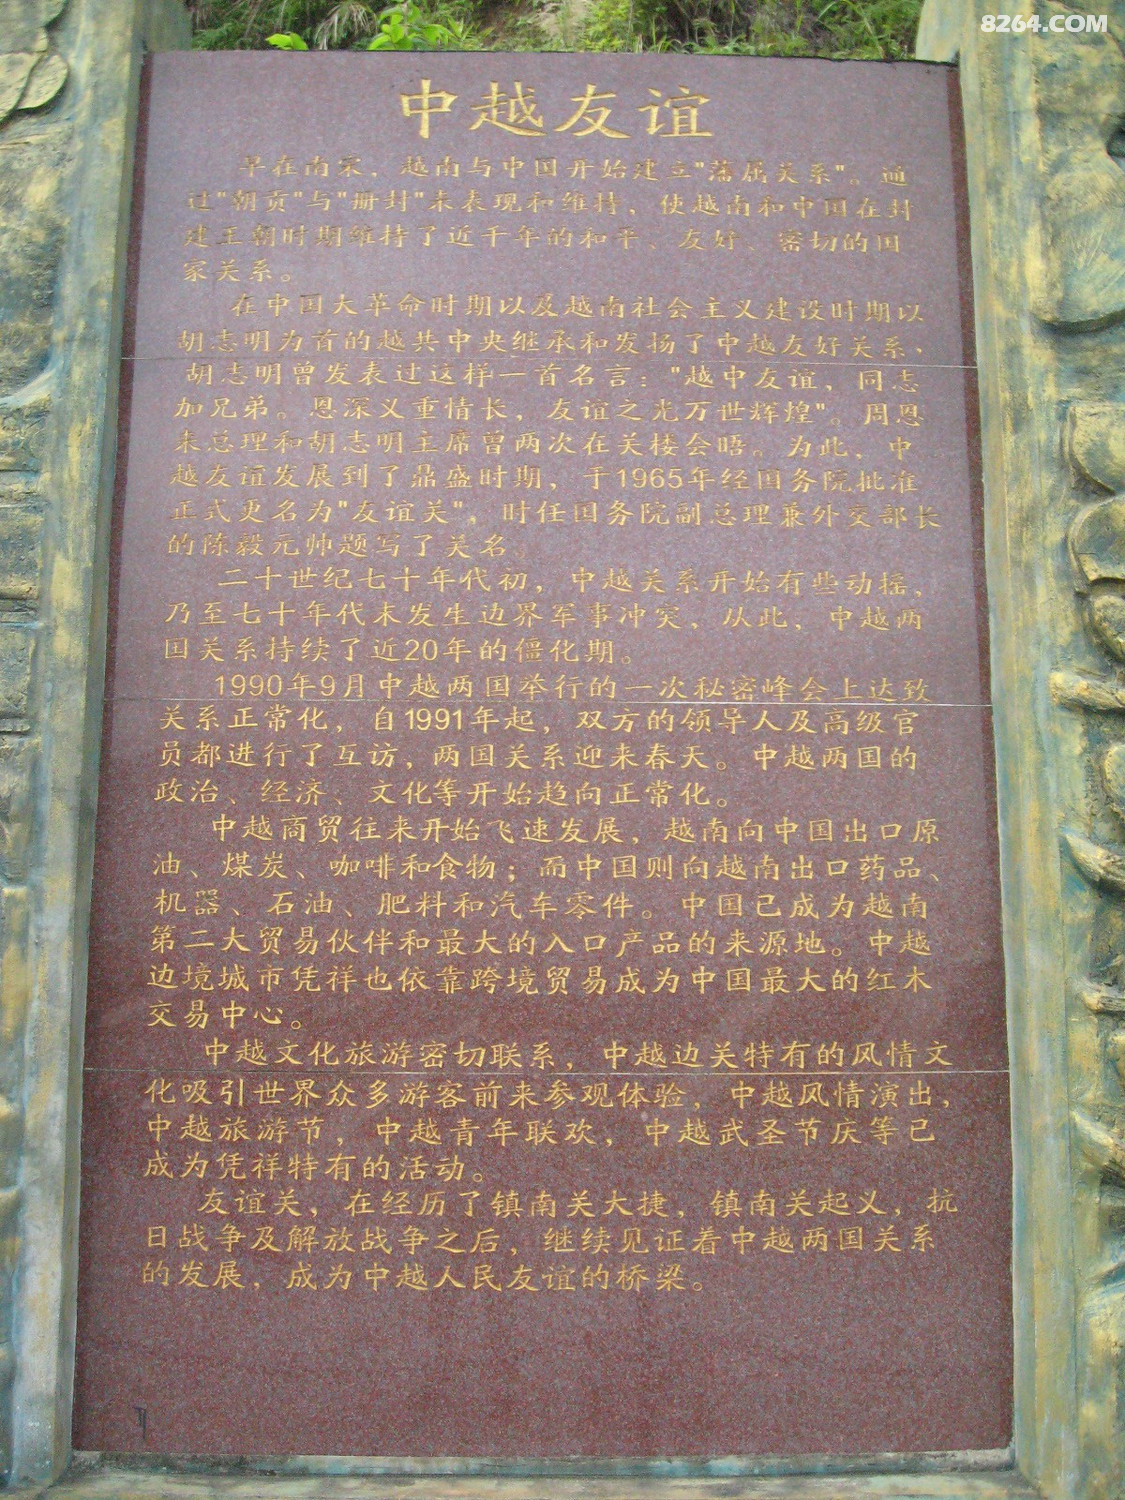 8264.COM
中越友谊
早在南宋，越南与中国开始建立"藩属关系"。通
过"朝贡"与"册封"来表现和维持，使越南和中国在封
建王朝时期维持了近千年的和平、友好、密切的国
家关系。
在中国大革命时期以及越南社会主义建设时期以
胡志明为首的越共中央继承和发扬了中越友好关系，
胡志明曾发表过这样一首名言："越中友谊，同志
加兄弟。恩深义重情长，友谊之光万世辉煌"。周恩
来总理和胡志明主席曾两次在关楼会晤。为此，中
越友谊发展到了鼎盛时期，于1965年经国务院批准
正式更名为"友谊关"，时任国务院副总理兼外交部长
的陈毅元帅题写了关名。
二十世纪七十年代初，中越关系开始有些动摇，
乃至七十年代末发生边界军事冲突，从此，中越两
国关系持续了近20年的僵化期。
1990年9月中越两国举行的一次秘密峰会上达致
关系正常化，自1991年起，双方的领导人及高级官
员都进行了互访，两国关系迎来春天。中越两国的
政治、经济、文化等开始趋向正常化。
中越商贸往来开始飞速发展，越南向中国出口原
油、煤炭、咖啡和食物；而中国则向越南出口药品、
机器、石油、肥料和汽车零件。中国已成为越南
第二大贸易伙伴和最大的入口产品的来源地。中越
边境城市凭祥也依靠跨境贸易成为中国最大的红木
交易中心。
中越文化旅游密切联系，中越边关特有的风情文
化吸引世界众多游客前来参观体验，中越风情演出，
中越旅游节，中越青年联欢，中越武圣节庆等已
成为凭祥特有的活动。
友谊关，在经历了镇南关大捷，镇南关起义，抗
日战争及解放战争之后，继续见证着中越两国关系
的发展，成为中越人民友谊的桥梁。